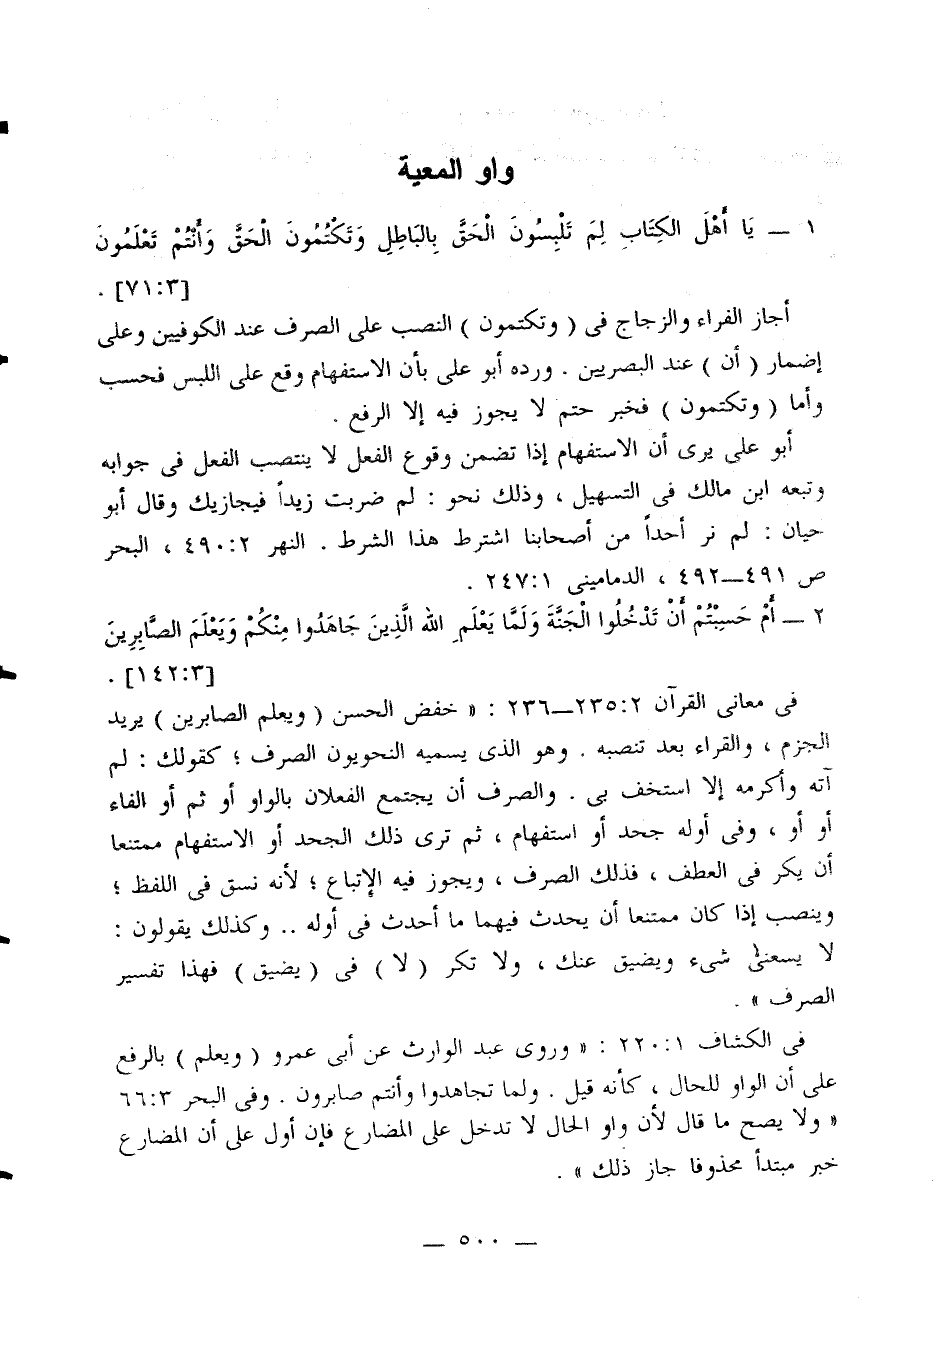 واو المعية
١ — يَا أَهْلَ الكِتَابِ لِمَ تَلْبِسُونَ الْحَقَّ بِالبَاطِلِ وَتَكْتُمُونَ الْحَقَّ وَأَنْتُمْ تَعْلَمُونَ
[٧١:٣] .
أجاز الفراء والزجاج فى ( وتكتمون ) النصب على الصرف عند الكوفيين وعلى
إضمار ( أن ) عند البصريين . ورده أبو على بأن الاستفهام وقع على اللبس فحسب
وأما ( وتكتمون ) فخبر حتم لا يجوز فيه إلا الرفع .
أبو على يرى أن الاستفهام إذا تضمن وقوع الفعل لا ينتصب الفعل فى جوابه
وتبعه ابن مالك فى التسهيل ، وذلك نحو : لم ضربت زيداً فيجازيك وقال أبو
حيان : لم نر أحداً من أصحابنا اشترط هذا الشرط . النهر ٤٩٠:٢ ، البحر
ص ٤٩١—٤٩٢ ، الدمامينى ٢٤٧:١ .
٢ — أَمْ حَسِبْتُمْ أَنْ تَدْخُلُوا الْجَنَّةَ وَلَمَّا يَعْلَمِ الله الَّذِينَ جَاهَدُوا مِنْكُمْ وَيَعْلَمَ الصَّابِرِينَ
[١٤٢:٣] .
فى معانى القرآن ٢٣٥:٢—٢٣٦ : « خفض الحسن ( ويعلم الصابرين ) يريد
الجزم ، والقراء بعد تنصبه . وهو الذى يسميه النحويون الصرف ؛ كقولك : لم
آته وأكرمه إلا استخف بى . والصرف أن يجتمع الفعلان بالواو أو ثم أو الفاء
أو أو ، وفى أوله جحد أو استفهام ، ثم ترى ذلك الجحد أو الاستفهام ممتنعا
أن يكر فى العطف ، فذلك الصرف ، ويجوز فيه الإتباع ؛ لأنه نسق فى اللفظ ؛
وينصب إذا كان ممتنعا أن يحدث فيهما ما أحدث فى أوله .. وكذلك يقولون :
لا يسعنى شىء ويضيق عنك ، ولا تكر ( لا ) فى ( يضيق ) فهذا تفسير
الصرف » .
فى الكشاف ٢٢٠:١ : « وروى عبد الوارث عن أبى عمرو ( ويعلم ) بالرفع
على أن الواو للحال ، كأنه قيل . ولما تجاهدوا وأنتم صابرون . وفى البحر ٦٦:٣
« ولا يصح ما قال لأن واو الحال لا تدخل على المضارع فإن أول على أن المضارع
خبر مبتدأ محذوفا جاز ذلك » .
— ٥٠٠ —